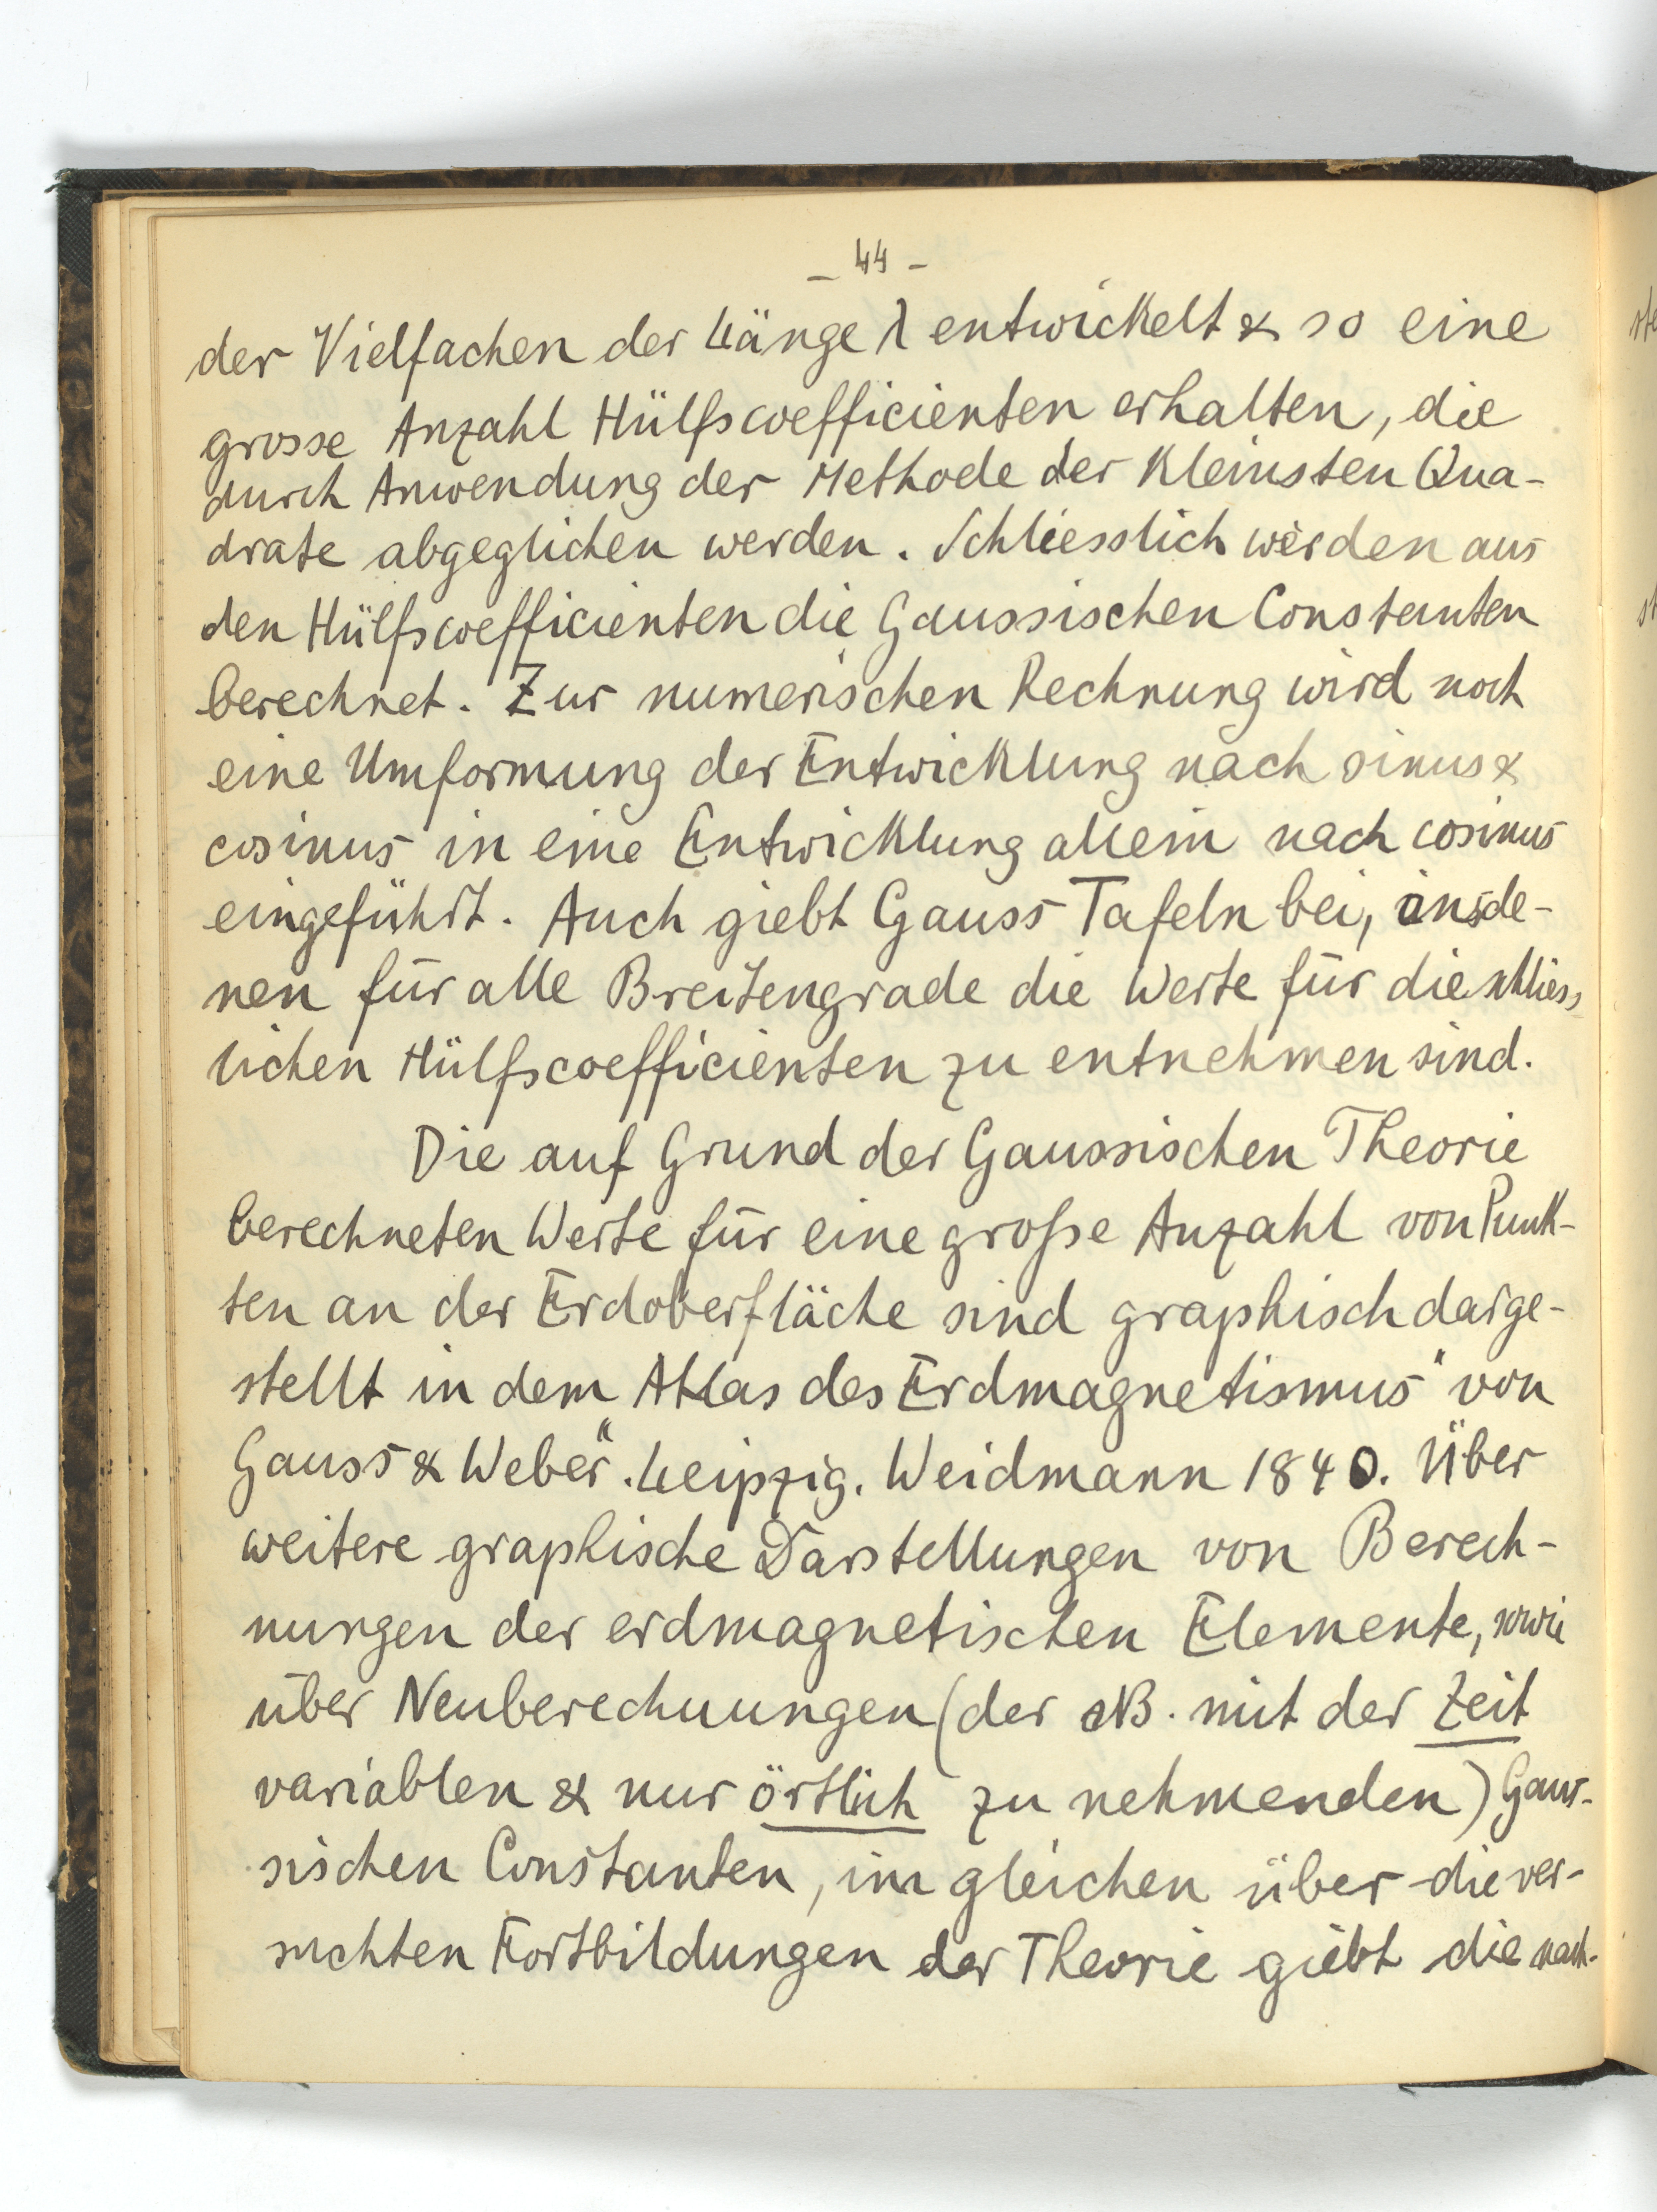 – 44 –
der Vielfachen der Länge λ entwickelt & so eine
grosse Anzahl Hülfscoefficienten erhalten, die
durch Anwendung der Methode der kleinsten Qua-
drate abgeglichen werden. Schliesslich werden aus
den Hülfscoefficienten die Gaussischen Constanten
berechnet. Zur numerischen Rechnung wird noch
eine Umformung der Entwicklung nach sinus &
cosinus in eine Entwicklung allein nach cosinus
eingeführt. Auch giebt Gauss Tafeln bei, in de-
nen für alle Breitengrade die Werte für die schliess
lichen Hülfscoefficienten zu entnehmen sind.
Die auf Grund der Gaussischen Theorie
berechneten Werte für eine große Anzahl von Punk-
ten an der Erdoberfläche sind graphisch darge-
stellt in dem Atlas des Erdmagnetismus" von
Gauss & Weber". Leipzig. Weidmann 1840. Über
weitere graphische Darstellungen von Berech-
nungen der erdmagnetischen Elemente, sowie
über Neuberechnungen (der NB. mit der Zeit
variablen & nur örtlich zu nehmenden) Gaus-
sischen Constanten, im gleichen über die ver-
suchten Fortbildungen der Theorie giebt die nach-